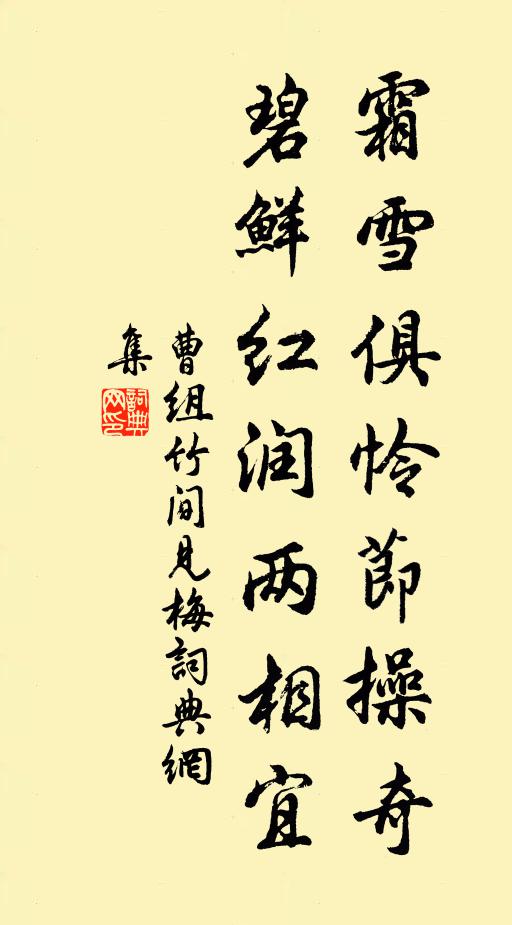 霜雪俱怜節操奇
碧鮮红润两相宜
曹组竹间見梅詞典網
集
詞典
网印